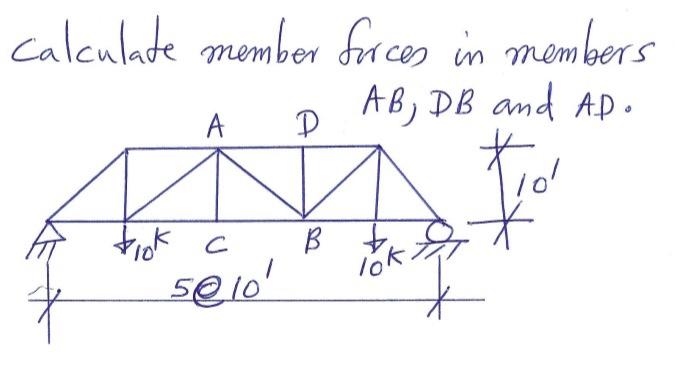 Calculate member forces in members
AB, DB and AD.
A D
10'
10K C B 10K
5@10'